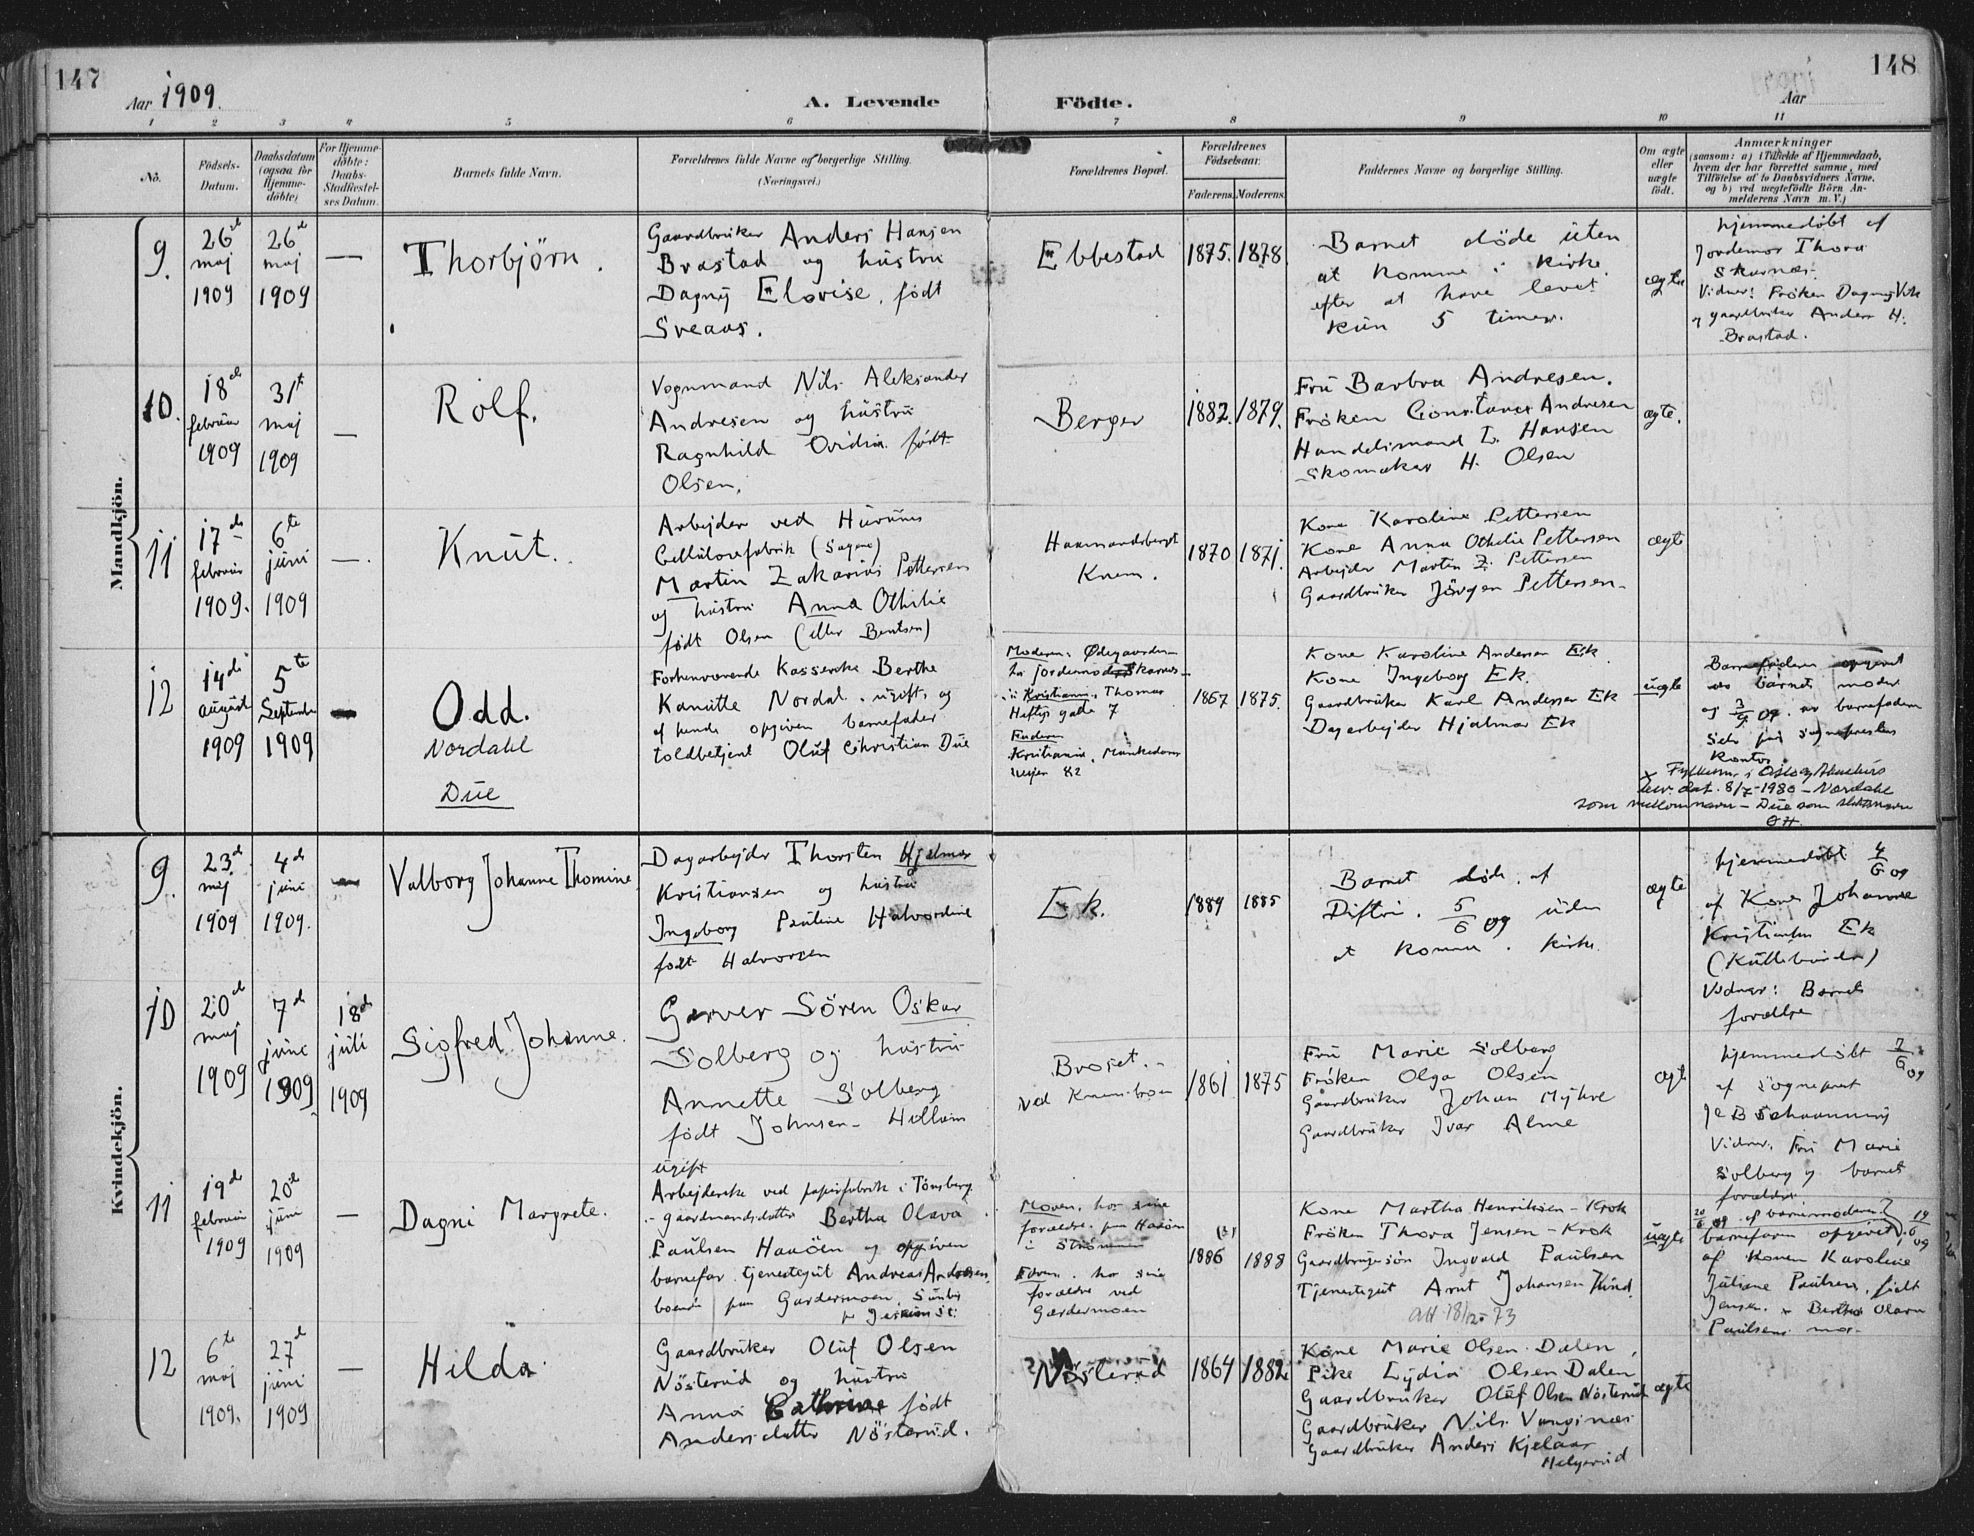 147
Aar 1909.
A. Levende
Födte.
Aar
148
1
2
3
4
5
6
7
8
9
10
11
No.
Födsels-
Datum.
Daabsdatum
(ogsaa for
Hjemme-
döbte)
For Hjemme-
döbte:
Daabs-
Stadfæstel-
ses Datum.
Barnets fulde Navn.
Forældrenes fulde Navne og borgerlige Stilling.
(Næringsvei.)
Forældrenes Bopæl.
Forældrenes
Födselsaar.
Faderens.
Moderens.
Faddernes Navne og borgerlige Stilling.
Om ægte
eller
uægte
födt.
Anmærkninger
(saasom: a) i Tilfælde af Hjemmedaab,
hvem der har forrettet samme, med
Tilföielse af to Daabsvidners Navne,
og b) ved uægtefödte Börn An-
melderens Navn m. V.)
Mandkjön.
9.
26de
maj
1909
26de
maj
1909
—
Thorbjörn.
Gaardbruker Anders Hansen
Brastad og hustru
Dagny Elovise, født
Sveaas.
Ebbestad
1875.
1878.
Barnet døde uten
at komme i kirke
efter at have levet
kun 5 timer.
ægte
hjemmedøbt af
jordemor Thora
Skarnæs.
Vidner: Frøken Dagny
og gaardbruker Anders H.
Brastad.
10.
18de
februar
1909
31te
maj
1909
—
Rolf.
Vognmand Nils Aleksander
Andresen og hustru
Ragnhild Ovidia født
Olsen.
Berger
1882.
1879.
Fru Barbra Andresen.
Frøken Constance Andresen
Handelsmand L. Hansen
Skomaker H. Olsen
ægte.
11
17de
februar
1909.
6te
juni
1909
—.
Knut.
Arbejder ved Hurums
Cellulosefabrik (Sagene)
Martin Zakarias Pettersen
og hustru Anna Othilie
født Olsen (eller Bentsen)
Knem.
1870
1871.
Kone Karoline Pettersen
Kone Anna Othilie Pettersen
Arbejder Martin Z. Pettersen
Gaardbruker Jörgen Pettersen
ægte
12
14de
august
1909
5te
September
1909
—
Odd.
Nordahl
Due
Forhenværende Kasserske Berthe
Kanutte Nordal. ugift, og
af hende opgiven barnefader
toldbetjent Oluf Christian Due
Moderen: Ødegaarden
hos jordemor Skarnæs
i Kristiania, Thomas
Heftys gade 7
Faderen
Kristiania, Munkedams
vejen 82
1867
1875.
Kone Karoline Andersen Ek.
Kone Ingeborg Ek.
Gaardbruker Karl Andersen Ek
Dagarbejder Hjalmar Ek
uægte
Barnefaderen opgivet
av barnets moder
og 3/9 09. av barnefaderen
selv paa sogneprestens
kontor.
x Fylkesm. i Oslo og Akershus
bev. dat. 8/7-1980 - Nordahl
som mellomnavn - Due som slektsnavn
Kvindekjön.
9.
23de
maj
1909
4de
juni
1909.
—
Valborg Johanne Thomine
Dagarbejder Thorsten Hjalmar
Kristiansen og hustru
Ingeborg Pauline Halvordine
født Halvorsen
Ek.
1884
1885
Barnet døde af
Difteri. 5/6 09 uden
at komme i kirke.
ægte
hjemmedøbt 4/6 09
af Kone Johanne
Kristiansen Ek
Vidner: Barnets
forældre
10
20de
maj
1909
7de
juni
1909
18de
juli
1909
Sigfred Johanne.
Garver Sören Oskar
Solberg og hustru
Annette Solberg
født Johnsen - Hellum
Braset.
ved Knem-broen
1861
1875
Fru Marie Solberg
Frøken Olga Olsen
Gaardbruker Johan Myhre
Gaardbruker Ivar Alme
ægte
hjemmedøbt 7/6 09
af Sogneprest
J C B Schaanning
Vidner: Fru Marie
Solberg og barnets
forældre.
11
19de
februar
1909
20de
juni
1909
—
Dagni Margrete.
ugift
Arbejderske ved papirfabrik i Tönsberg
gaardmandsdatter Bertha Olava
Paulsen Haaöen og opgiven
barnefar tjenestegut Andreas Andresen,
boende paa Gardermoen
Moren, hos sine
forældre paa Haaöen
i Strömmen
Faren, hos sine
forældre ved
Gardermoen
1886
1888
Kone Martha Henriksen - Krok
Frøken Thora Jensen - Krok
Gaardbrugersön Ingvald Paulsen
Tjenestegut Arnt Johansen Hund.
att 18/12-73
uægte
20/6 09 af barnemoderen
barnefaren opgivet 19/6 09
af Konen Karoline
Juliane Paulsen, født
Jensen. - Bertha Olava
Paulsens mor.
12
6te
maj
1909.
27de
juni
1909
—
Hilda.
Gaardbruker Oluf Olsen
Nösterud og hustru
Anna Cathrine født
Andersdatter Nösterud.
Nösterud
1864
1882
Kone Marie Olsen Dalen,
Pike Lydia Olsen Dalen
Gaardbruker Oluf Olsen Nösterud
Gaardbruker Nils Vangsnæs
Gaardbruker Anders Kjelaas
Helgerud
ægte